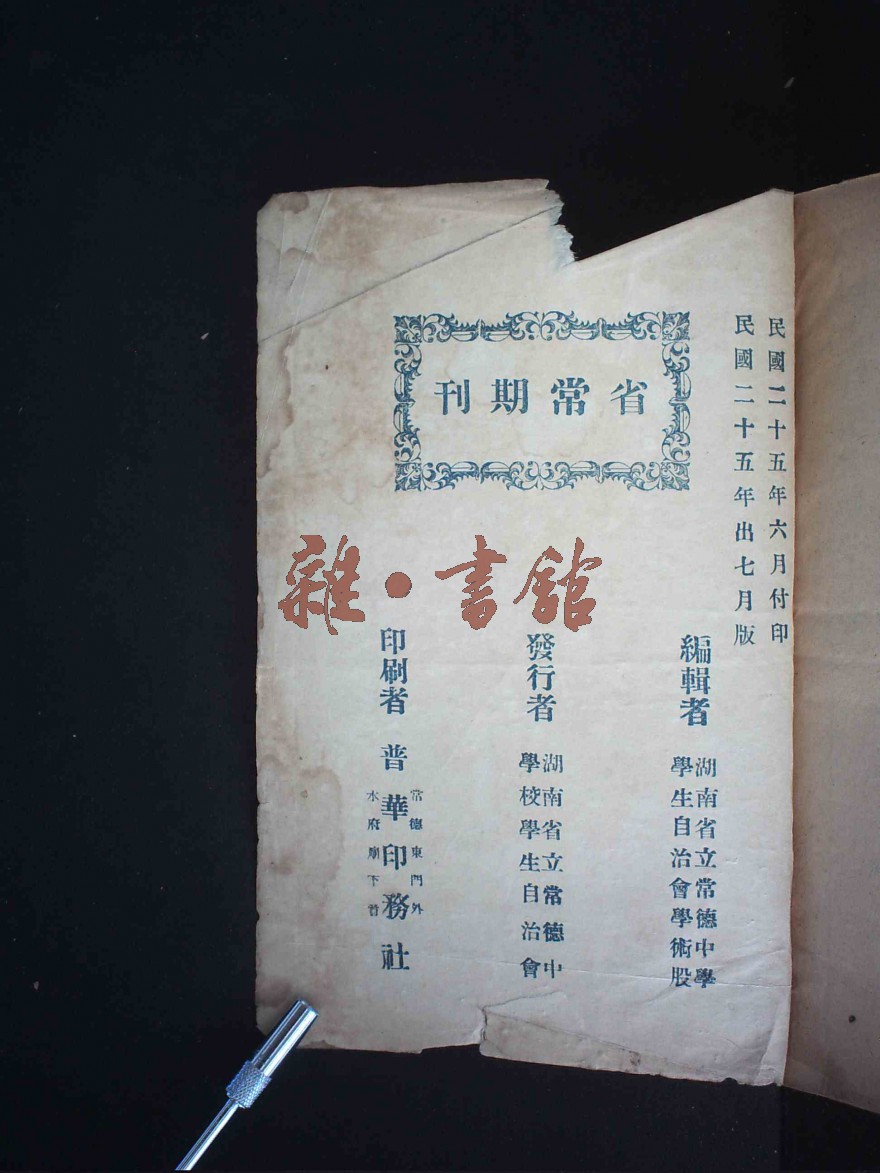 民國二十五年六月付印
民國二十五年出七月版
省常期刊
編輯者
湖南省立常德中學
學生自治會學術股
發行者
湖南省立常德中
學校學生自治會
印刷者
普華印務社
常德東門外
水府廟下首
雜·書館